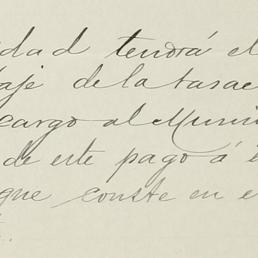 idad tendrá el
aje de la tasac
cargo al Muni
de este pago á e
que conste en e